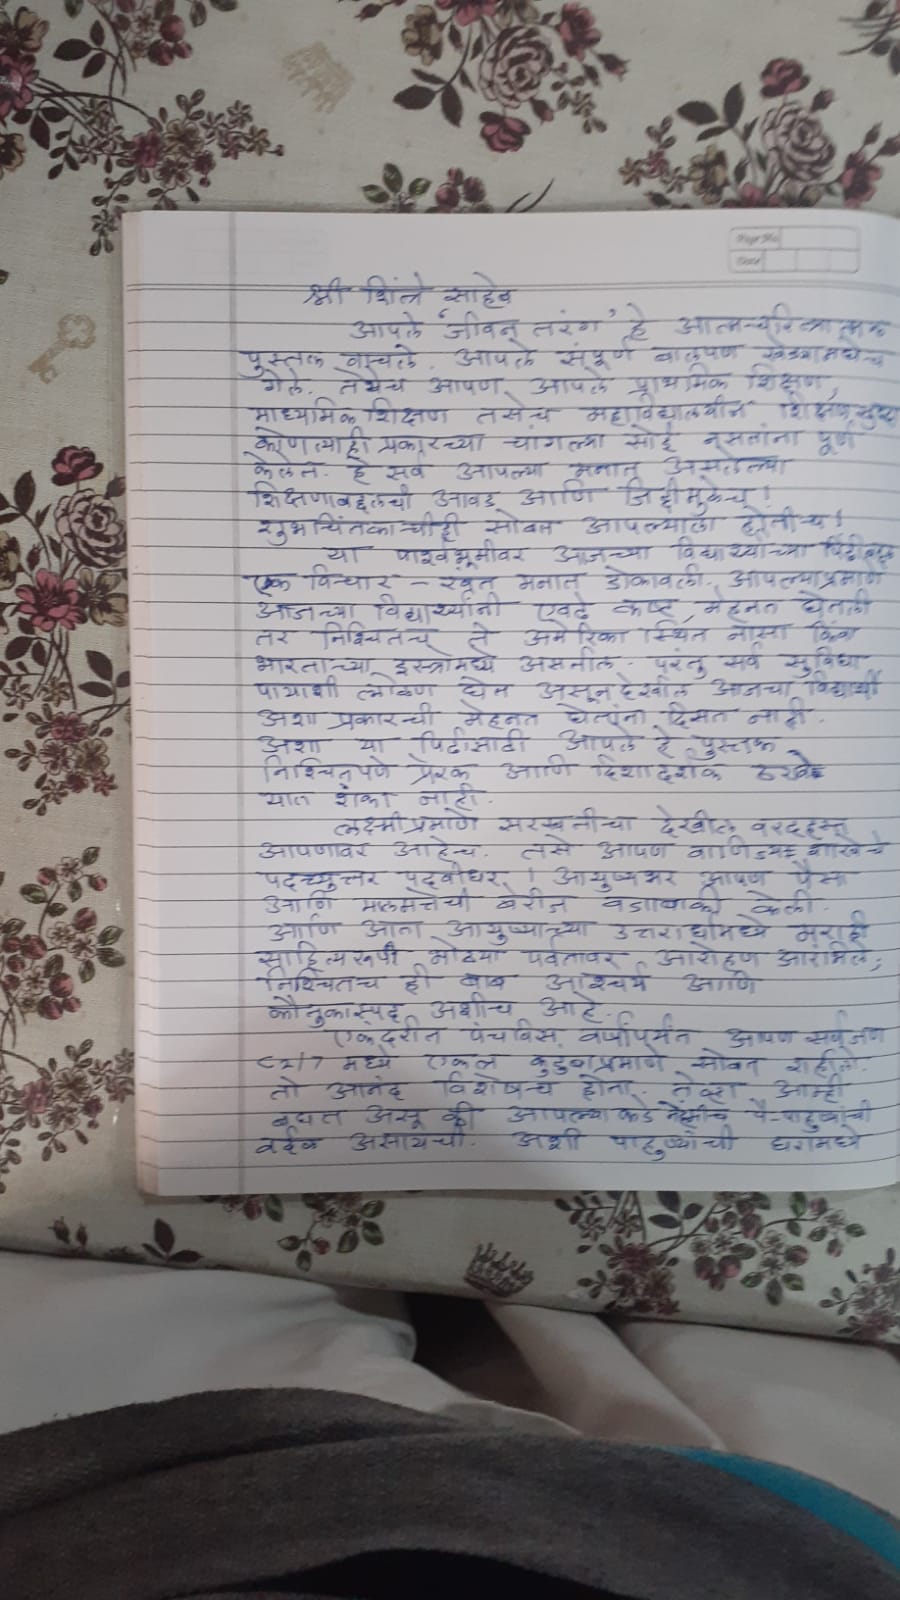 श्री शिंत्रे साहेब
आपले 'जीवन तरंग' हे आत्मचरित्रात्मक
पुस्तक वाचले. आपले संपूर्ण बालपण खेड्यामधेच
गेले. तसेच आपण आपले प्राथमिक शिक्षण,
माध्यमिक शिक्षण तसेच महाविद्यालयीन शिक्षणसुध्दा
कोणत्याही प्रकारच्या चांगल्या सोई नसतांना पूर्ण
केलेत. हे सर्व आपल्या मनात असलेल्या
शिक्षणाबद्दलची आवड आणि जिद्दीमुळेच!
शुभचिंतकांचीही सोबत आपल्याला होतीच!
या पार्श्वभूमीवर आजच्या विद्यार्थ्यांच्या पिढीबद्दल
एक विचार - रवत मनात डोकावली. आपल्याप्रमाणे
आजच्या विद्यार्थ्यांनी एवढे कष्ट, मेहनत घेतली
तर निश्चितच ते अमेरिका स्थित नासा किंवा
भारताच्या इस्त्रोमध्ये असतील. परंतु सर्व सुविधा
पायाशी लोळण घेत असूनदेखील आजचा विद्यार्थी
अशा प्रकारची मेहनत घेतांना दिसत नाही.
अशा या पिढीसाठी आपले हे पुस्तक
निश्चितपणे प्रेरक आणि दिशादर्शक ठरेल
यात शंका नाही.
लक्ष्मीप्रमाणे सरस्वतीचा देखील वरदहस्त
आपणावर आहेच. तसे आपण वाणिज्य शाखेचे
पदव्युत्तर पदवीधर! आयुष्यभर आपण पैसा
आणि मालमत्तेची बेरीज वजाबाकी केली.
आणि आता आयुष्याच्या उत्तरार्धामध्ये मराठी
साहित्यरूपी मोठ्या पर्वतावर आरोहण आरंभिले,
निश्चितच ही बाब आश्चर्य आणि
कौतुकास्पद अशीच आहे.
एकंदरीत पंचविस वर्षांपर्यंत आपण सर्वजण
C2/7 मध्ये एकत्र कुटुंबाप्रमाणे सोबत राहीलो.
तो आनंद विशेषच होता. तेव्हा आम्ही
बघत असू की आपल्याकडे नेहमीच पै-पाहुण्यांची
वर्दळ असायची. अशी पाहुण्यांची घरामध्ये